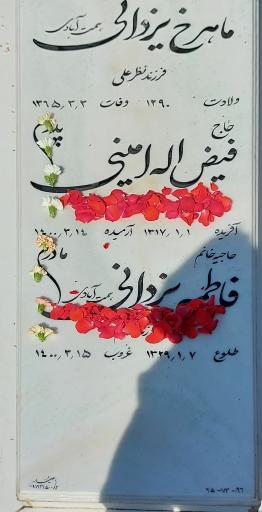 ماهرخ یزدانی همت آبادی
فرزند نظرعلی
ولادت ۱۲۹۰ وفات ۱۳۶۵/۳/۳
حاج پدرم
فیض اله امینی
آفریده ۱۳۱۷/۱/۱ آرمیده ۱۴۰۰/۳/۱۴
حاجیه خانم مادرم
فاطمه یزدانی همت آبادی
طلوع ۱۳۲۹/۱/۷ غروب ۱۴۰۰/۳/۱۵
۶۵-۷۳-۹۶